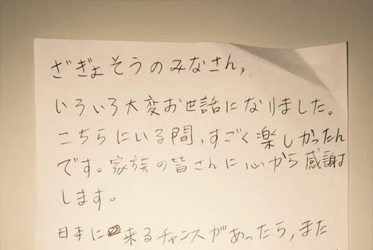 ざぎょそうのみなさん,
いろいろ大変お世話になりました。
こちらにいる間,すごく楽しかったん
です。家族の皆さんに心から感謝
します。
日本に来るチャンスがあったら,また